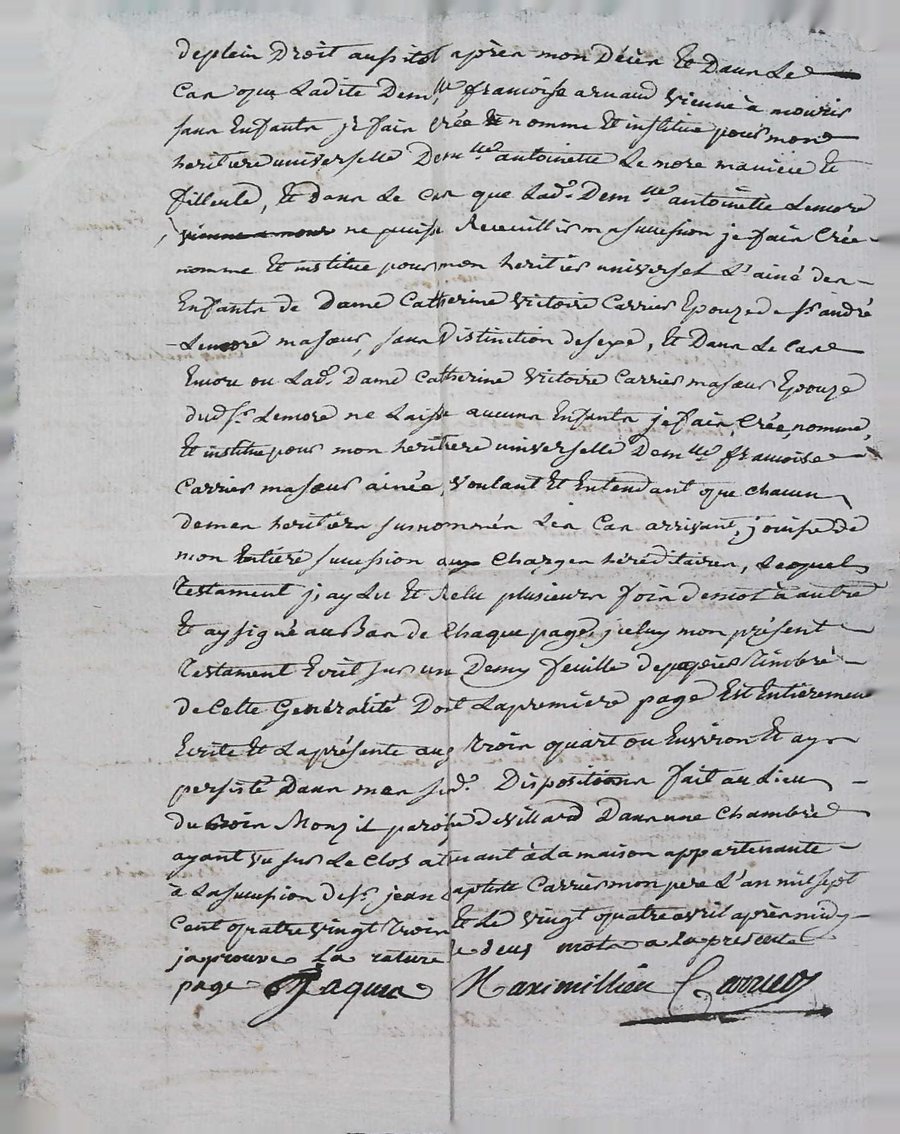 deplein Droit aussitot après mon Décès Et Dans Le
Cas que Ladite Dem.lle francoise arnaud vienne à mourir
sans Enfants je fais crée Et nomme Et institue pour mon
heritiere universelle Dem.lle antoinette Le more ma niece Et
fillente, Et Dans Le cas que Lad.e Dem.lle antoinette Lemore
vienne a mour ne puise Receuillir ma sucession je fais Crée
nomme Et institue pour mon heritier universel L'ainé des
Enfants de Dame Catherine victoire Carrier Epouze de Sr andré
Lemore masœur, sans Distinction desexe, Et Dans Le Cas
Encore ou Lad.e Dame Catherine victoire Carrier masœur Epouze
dud.Sr. Lemore ne Laisse aucuns Enfants je fais, Crée, nomme,
Et institue pour mon heritiere universelle Dem.lle francoise
Carrier masœur ainée, voulant Et Entendant que chacun
demes heritiers surnommés Les Cas arrivant, jouisse de
mon Entiere sucession aux Charges héréditaires, Lequel
Testament j'ay Lu Et Relu plusieurs fois demot à autre
Et ay signé au Bas de Chaque page, jceluy mon présent
Testament Ecrit sur un Demy feuille depapier Timbré
de Cette Généralité Dont Lapremiere page Est Entierement
Ecrite Et Laprésente aux Trois quart ou Environ Et ay
persisté Dans mes sud.e Dispositions fait au Lieu
du Monzil paroisse de villard Dans une Chambre
ayant vu sur Le Clos atenant à la maison appartenante
à La sucession de Sr. jean Baptiste Carrier mon pere L'an mil sept
Cent quatre vingt Trois Et Le vingt quatre avril après midy
japrouve La rature de deux mots a la presente
page Jaques Maximillien Carrier